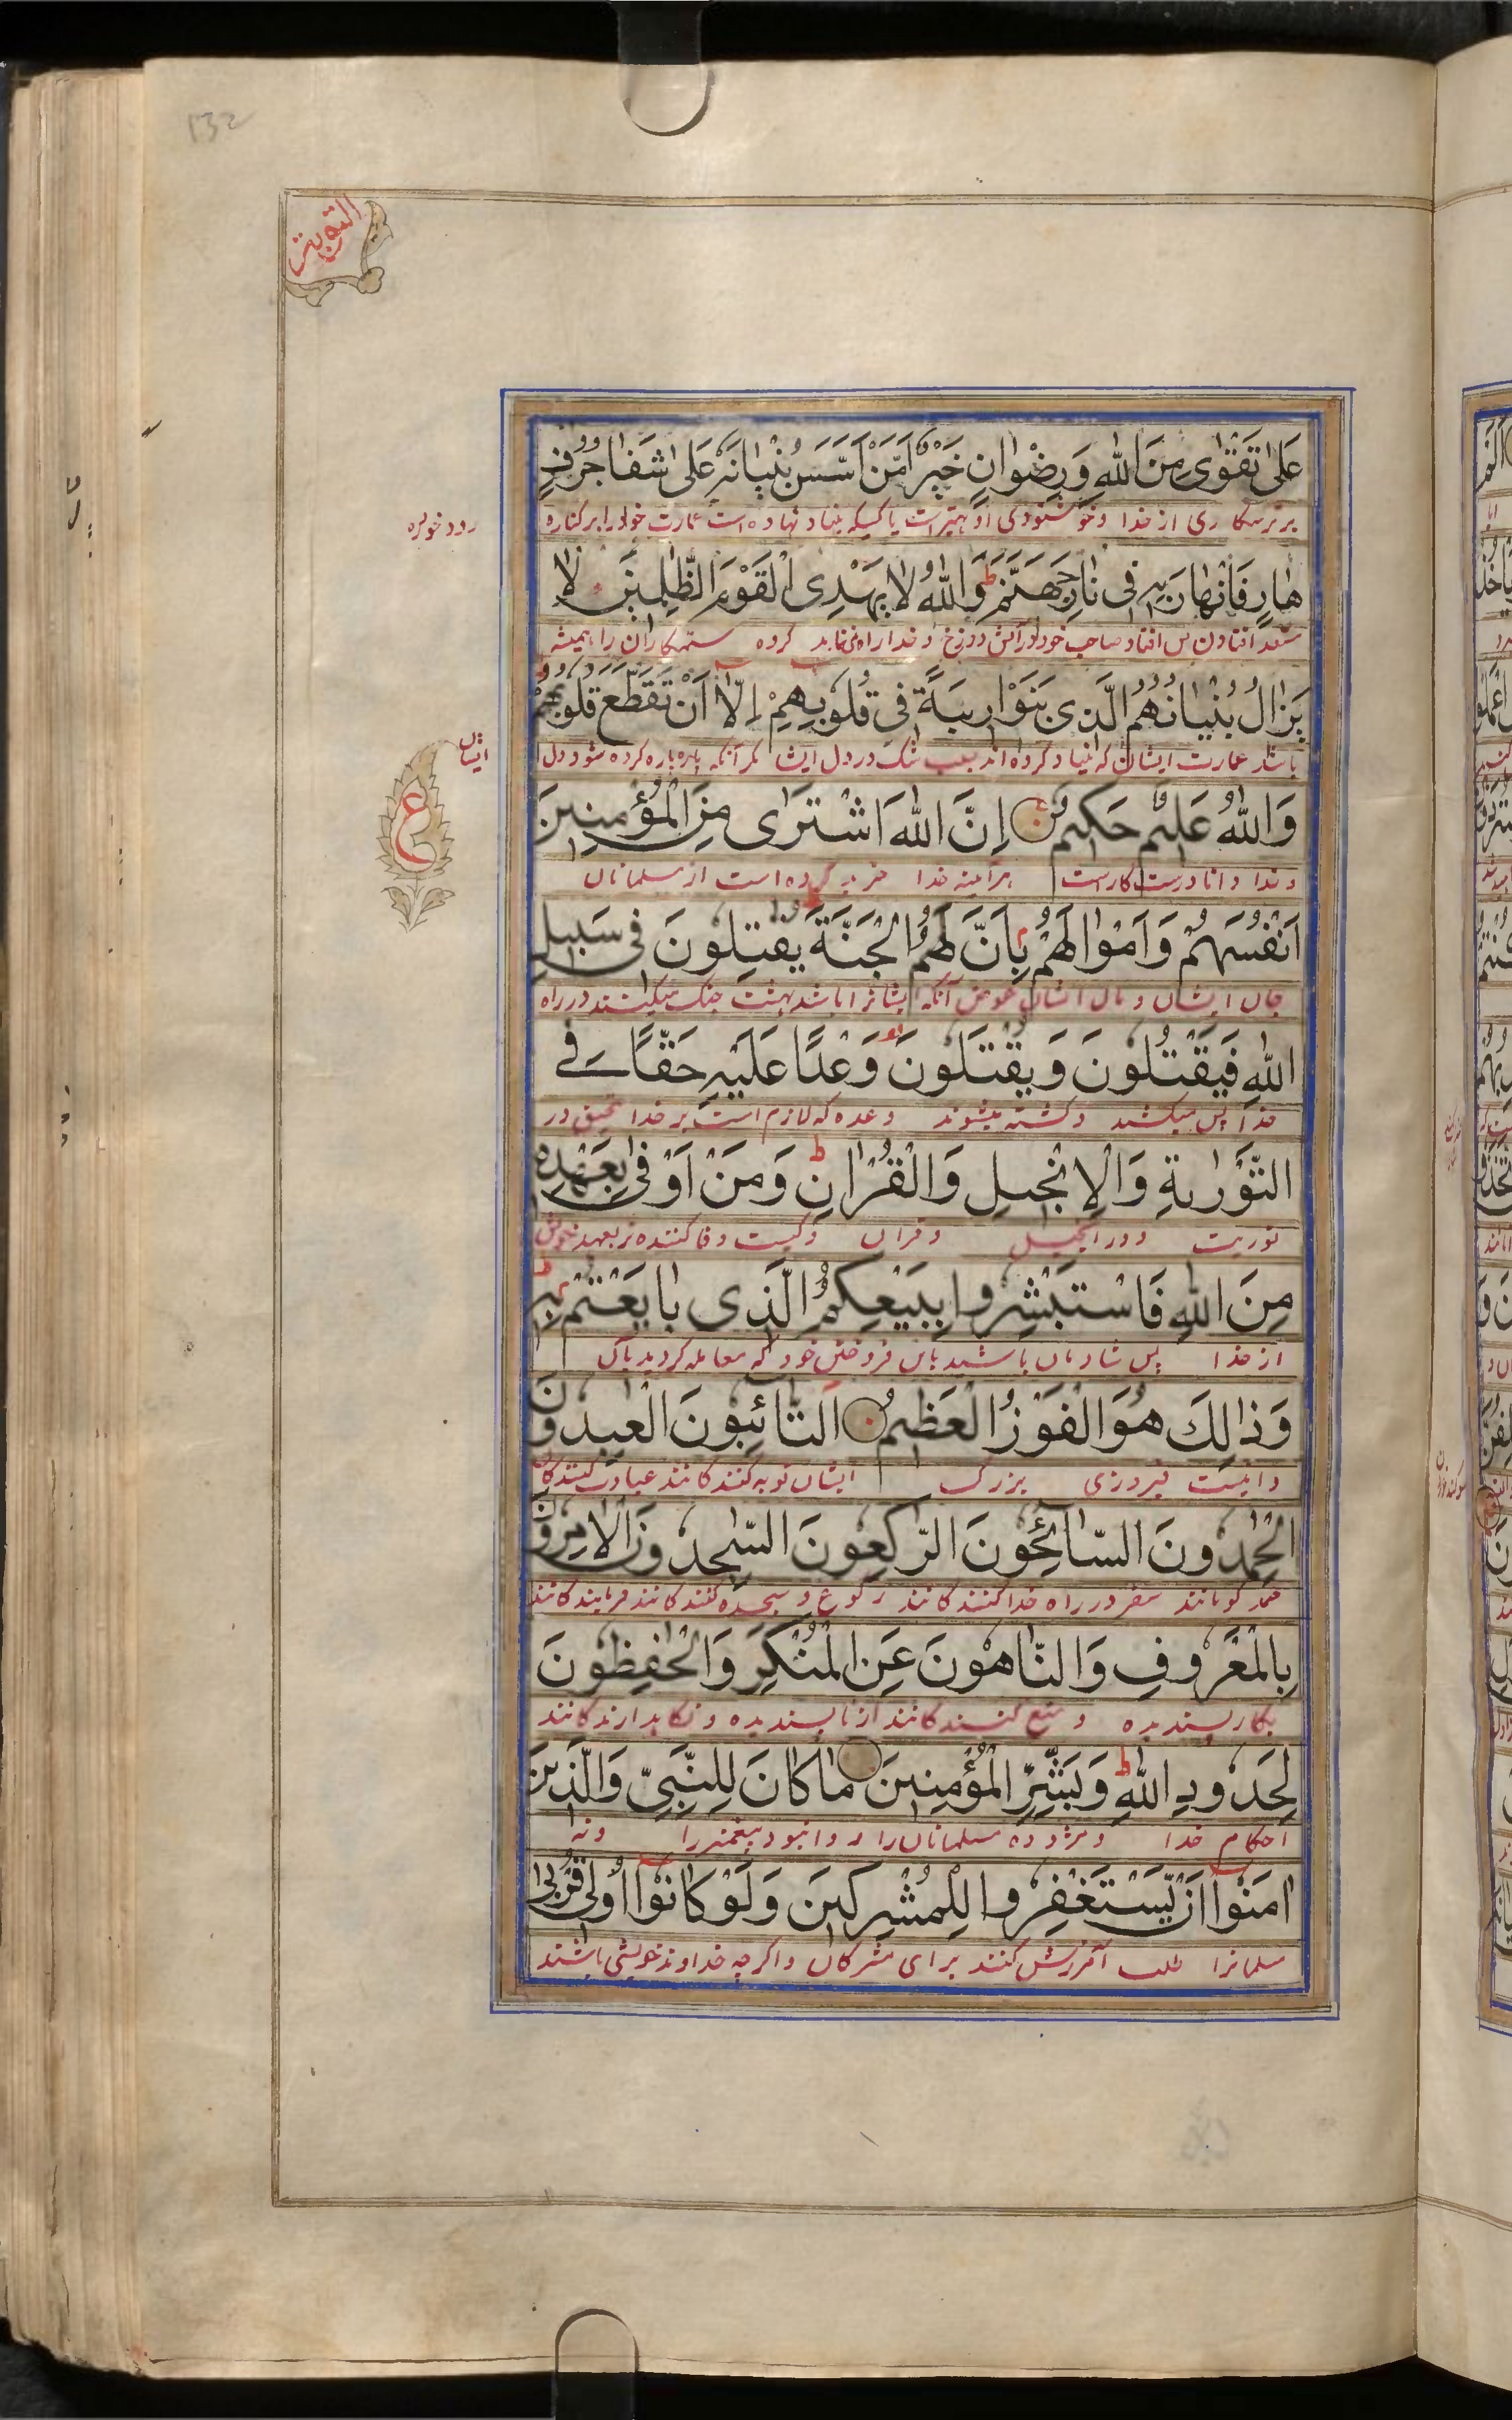 132
التوبة
عَلٰى تَقْوٰى مِنَ اللّٰهِ وَرِضْوَانٍ خَيْرٌ اَمَّنْ اَسَّسَ بُنْيَانَهٗ عَلٰى شَفَا جُرُفٍ
بر ترسکاری از خدا و خوشنودی او بهترست یا کسیکه بنیاد نهاده است عمارت خود را بر کناره
رود خورده
هَارٍ فَانْهَارَ بِهٖ فِى نَارِ جَهَنَّمَ ط وَاللّٰهُ لَا يَهْدِى الْقَوْمَ الظّٰلِمِيْنَ لَا
افتادن پس افتاد صاحب خود در آتش دوزخ و خدا راه نمی نماید کروه ستمکاران را همیشه
يَزَالُ بُنْيَانُهُمُ الَّذِى بَنَوْا رِيْبَةً فِى قُلُوْبِهِمْ اِلَّا اَنْ تَقَطَّعَ قُلُوْبُهُمْ
باشد عمارت ایشان که بنیاد کرده اند سبب شک در دل ایشان مکر آنکه پاره پاره کرده شود دل
ایشان
ع
وَاللّٰهُ عَلِيْمٌ حَكِيْمٌ اِنَّ اللّٰهَ اشْتَرٰى مِنَ الْمُؤْمِنِيْنَ
و خدا دانا درست کارست هر آینه خدا خرید کرده است از مسلمانان
اَنْفُسَهُمْ وَاَمْوَالَهُمْ بِاَنَّ لَهُمُ الْجَنَّةَ يُقَاتِلُوْنَ فِى سَبِيْلِ
جان ایشان و مال ایشان عوض آنکه ایشانرا باشد بهشت جنک میکنند در راه
اللّٰهِ فَيَقْتُلُوْنَ وَيُقْتَلُوْنَ وَعْدًا عَلَيْهِ حَقًّا فِى
خدا پس میکشند و کشته میشوند وعده که لازم است بر خدا تحقیق در
التَّوْرٰىةِ وَالْاِنْجِيْلِ وَالْقُرْاٰنِ ط وَمَنْ اَوْفٰى بِعَهْدِهٖ
توریت و در انجیل و قران و کیست وفا کننده تر بعهد خویش
مِنَ اللّٰهِ فَاسْتَبْشِرُوْا بِبَيْعِكُمُ الَّذِى بَايَعْتُمْ بِهٖ ط
از خدا پس شادمان باشید باین فروختن خود که معامله کردید بآن
وَذٰلِكَ هُوَ الْفَوْزُ الْعَظِيْمُ اَلتَّائِبُوْنَ الْعٰبِدُوْنَ
و اینست فیروزی بزرک ایشان توبه کنندکانند عبادت کنندکان
الْحٰمِدُوْنَ السَّائِحُوْنَ الرّٰكِعُوْنَ السّٰجِدُوْنَ الْاٰمِرُوْنَ
حمد کویانند سفر در راه خدا کنندکانند رکوع و سجده کنندکانند فرمایندکانند
بِالْمَعْرُوْفِ وَالنَّاهُوْنَ عَنِ الْمُنْكَرِ وَالْحٰفِظُوْنَ
بکار پسندیده و منع کنندکانند از نا پسندیده و نکاه دارندکانند
لِحُدُوْدِ اللّٰهِ ط وَبَشِّرِ الْمُؤْمِنِيْنَ مَا كَانَ لِلنَّبِىِّ وَالَّذِيْنَ
احکام خدا و مژده ده مسلمانان را روا نبود پیغمبر را و نه
اٰمَنُوْا اَنْ يَّسْتَغْفِرُوْا لِلْمُشْرِكِيْنَ وَلَوْ كَانُوْا اُولِى قُرْبٰى
مسلمانرا طلب آمرزش کنند برای مشرکان و اکرچه خداوند خویشی باشند